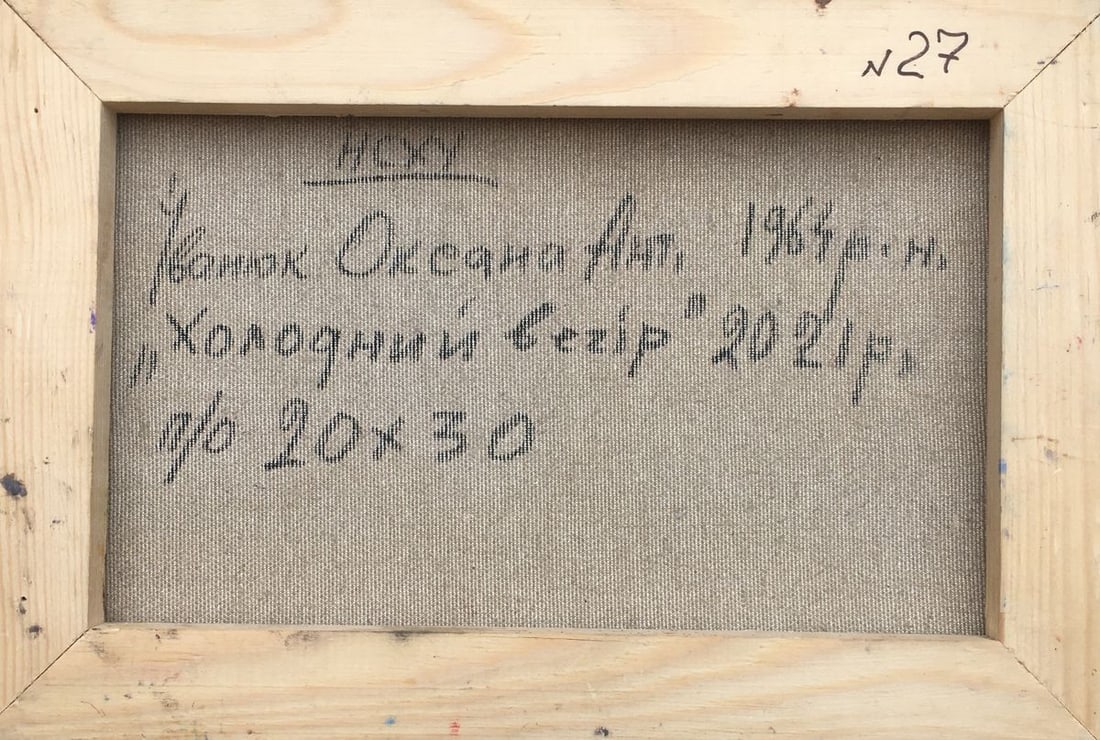 N27
НСХУ
Іванюк Оксана Ант. 1964р.н.
„Холодний вечір" 2021р.
п/о 20х30